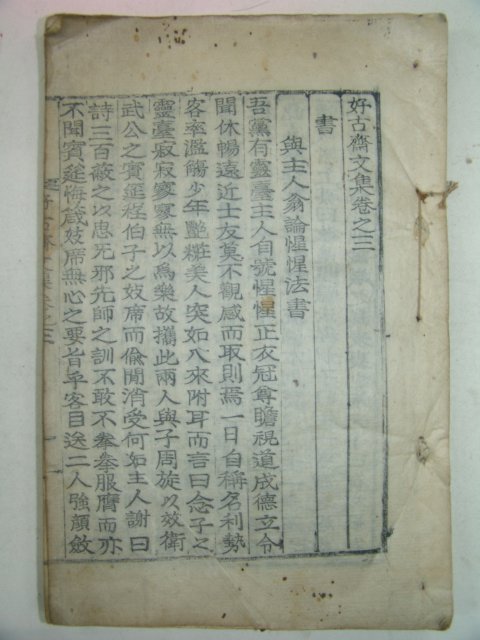 好古齋文集卷之三
書
與主人翁論惺惺法書
吾黨有靈臺主人自號惺惺正衣冠尊瞻視道成德立令
聞休暢遠近士友莫不觀感而取則焉一日自稱名利勢
客率濫觴少年艷粧美人突如入來附耳而言曰念子之
靈臺寂寂寥寥無以爲樂故攜此兩人與子周旋以效衛
武公之賓筵程伯子之妓席而偸閒消受何如主人謝曰
詩三百蔽之以思无邪先師之訓不敢不拳拳服膺而亦
不聞賓筵悔箴妓席無心之要旨乎客目送二人強顏斂